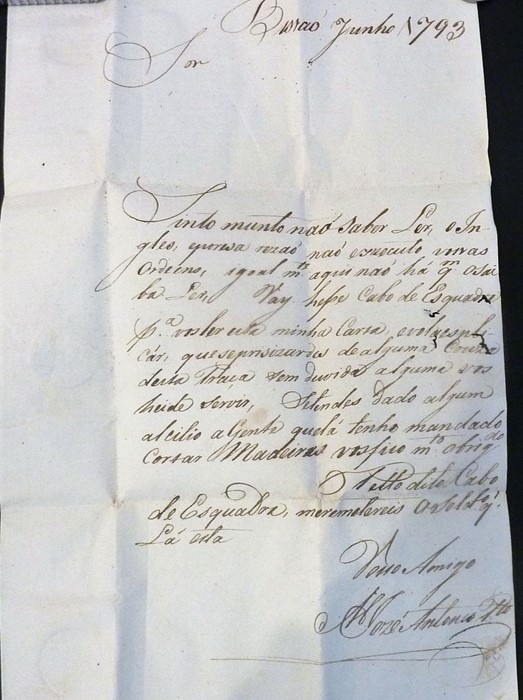 Bissao Junho 1793
Sor
Sinto munto naõ saber Ler, o In-
gles, que esa rezaõ naõ executo vossas
Ordens, igoal mte aqui nao há qm o sai
ba Ler, Vay hesse Cabo de Esquadra
pa vos ler esta minha Carta, e vola espli
cár, que se presizardes de alguma Couza
desta Praça sem duvida alguma vos
heide servir, Setendes dado algum
alcilio a Gente que lá tenho mandado
Cortar Madeiras vos fico mto obrigdo
Pello dito Cabo
de Esquadra, me remetereis o solddo q.
Lá esta
Vosso Amigo
Joze Antonio Pto